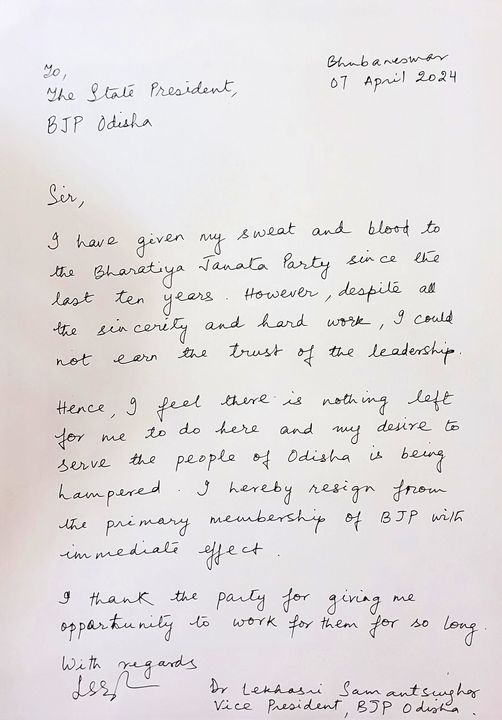 Bhubaneswar
07 April 2024
To,
The State President,
BJP Odisha
Sir,
I have given my sweat and blood to
the Bharatiya Janata Party since the
last ten years. However, despite all
the sincerity and hard work, I could
not earn the trust of the leadership.
Hence, I feel there is nothing left
for me to do here and my desire to
serve the people of Odisha is being
hampered. I hereby resign from
the primary membership of BJP with
immediate effect.
I thank the party for giving me
opportunity to work for them for so long.
With regards
Dr Lekhasri Samantsinghar
Vice President, BJP Odisha.